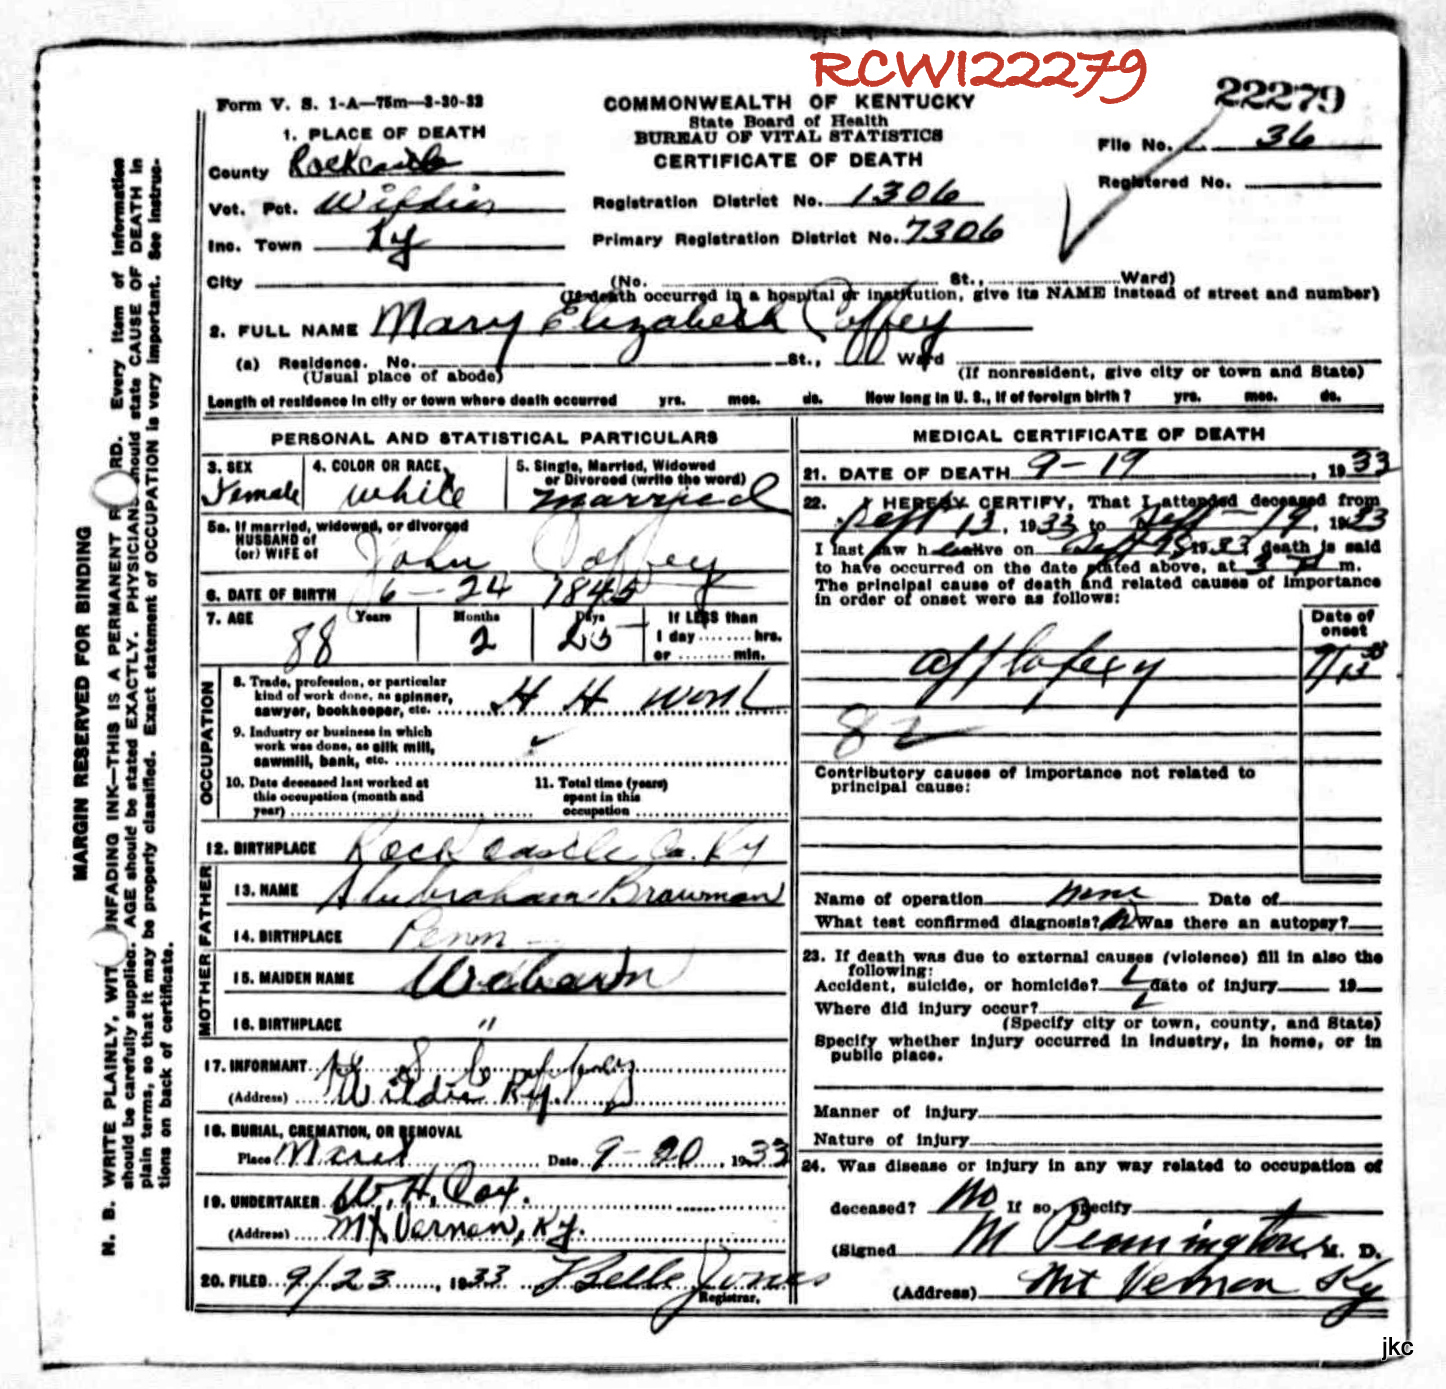 RCW122279
22279
Form V. S. 1-A—75m—3-30-33
COMMONWEALTH OF KENTUCKY
State Board of Health
BUREAU OF VITAL STATISTICS
CERTIFICATE OF DEATH
File No. 36
Registered No.
1. PLACE OF DEATH
County Rockcastle
Vot. Pct. Wildie
Inc. Town Ky
City
Registration District No. 1306
Primary Registration District No. 7306
(No. St., Ward)
(If death occurred in a hospital or institution, give its NAME instead of street and number)
2. FULL NAME Mary Elizabeth Coffey
(a) Residence. No. St., Ward
(Usual place of abode)
(If nonresident, give city or town and State)
Length of residence in city or town where death occurred yrs. mos. ds. How long in U. S., if of foreign birth? yrs. mos. ds.
PERSONAL AND STATISTICAL PARTICULARS
3. SEX
Female
4. COLOR OR RACE
white
5. Single, Married, Widowed
or Divorced (write the word)
married
5a. If married, widowed, or divorced
HUSBAND of
(or) WIFE of John Coffey
6. DATE OF BIRTH 6-24 1845
7. AGE Years Months Days If LESS than
88 2 25 1 day ........ hrs.
or ........ min.
OCCUPATION
8. Trade, profession, or particular
kind of work done, as spinner,
sawyer, bookkeeper, etc. H H work
9. Industry or business in which
work was done, as silk mill,
sawmill, bank, etc.
10. Date deceased last worked at
this occupation (month and
year)
11. Total time (years)
spent in this
occupation
12. BIRTHPLACE Rock castle Co. Ky
FATHER
13. NAME Abraham Browman
14. BIRTHPLACE Penn
MOTHER
15. MAIDEN NAME
16. BIRTHPLACE "
17. INFORMANT
(Address) Wildie Ky.
18. BURIAL, CREMATION, OR REMOVAL
Place Date 9-20, 1933
19. UNDERTAKER W. H. Cox.
(Address) Mt Vernon, Ky.
20. FILED 9/23, 1933 Belle Jones
Registrar.
MEDICAL CERTIFICATE OF DEATH
21. DATE OF DEATH 9-19, 1933
22. I HEREBY CERTIFY, That I attended deceased from
Sept 13, 1933 to Sept 19, 1933
I last saw h alive on Sept 1933, death is said
to have occurred on the date stated above, at 3 m.
The principal cause of death and related causes of importance
in order of onset were as follows:
Date of
onset
9/13 33
82
Contributory causes of importance not related to
principal cause:
Name of operation none Date of
What test confirmed diagnosis? Was there an autopsy?
23. If death was due to external causes (violence) fill in also the
following:
Accident, suicide, or homicide? date of injury 19
Where did injury occur?
(Specify city or town, county, and State)
Specify whether injury occurred in industry, in home, or in
public place.
Manner of injury
Nature of injury
24. Was disease or injury in any way related to occupation of
deceased? No If so, specify
(Signed M Pennington, M. D.
(Address) Mt Vernon Ky
MARGIN RESERVED FOR BINDING
N. B. WRITE PLAINLY, WITH UNFADING INK—THIS IS A PERMANENT RECORD. Every item of information
should be carefully supplied. AGE should be stated EXACTLY. PHYSICIANS should state CAUSE OF DEATH in
plain terms, so that it may be properly classified. Exact statement of OCCUPATION is very important. See instruc-
tions on back of certificate.
jkc